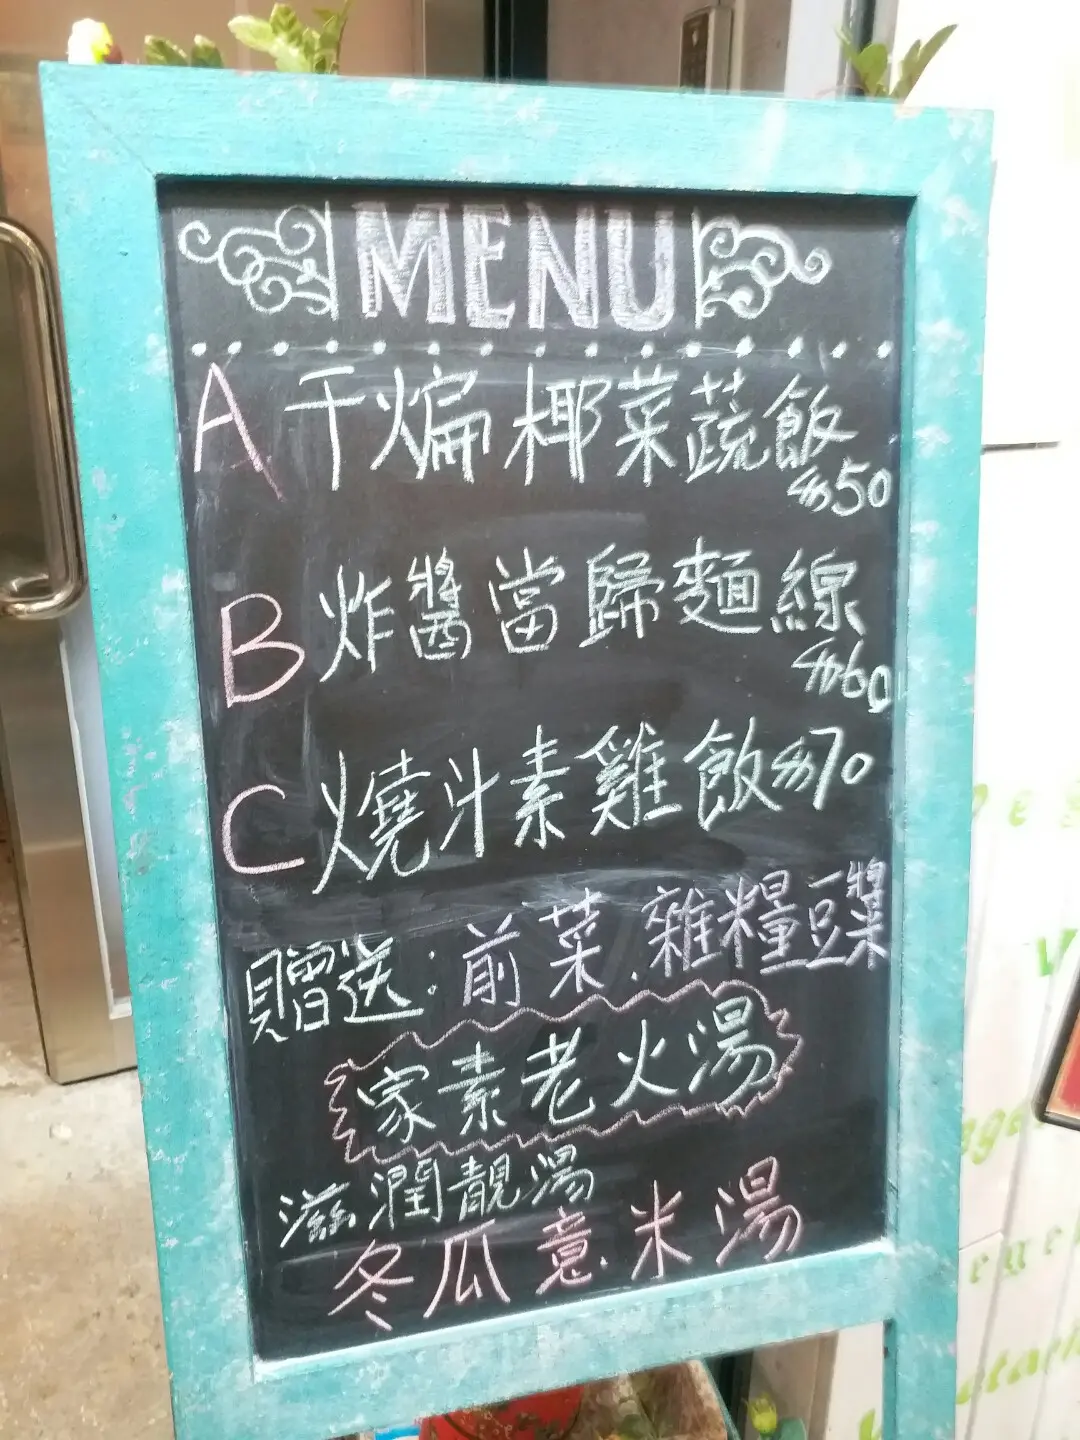 MENU
A 干煸椰菜蔬飯
$50
B 炸醬當歸麵線
$60
C 燒汁素雞飯 $70
贈送：前菜.雜糧豆漿
家素老火湯
滋潤靚湯
冬瓜薏米湯